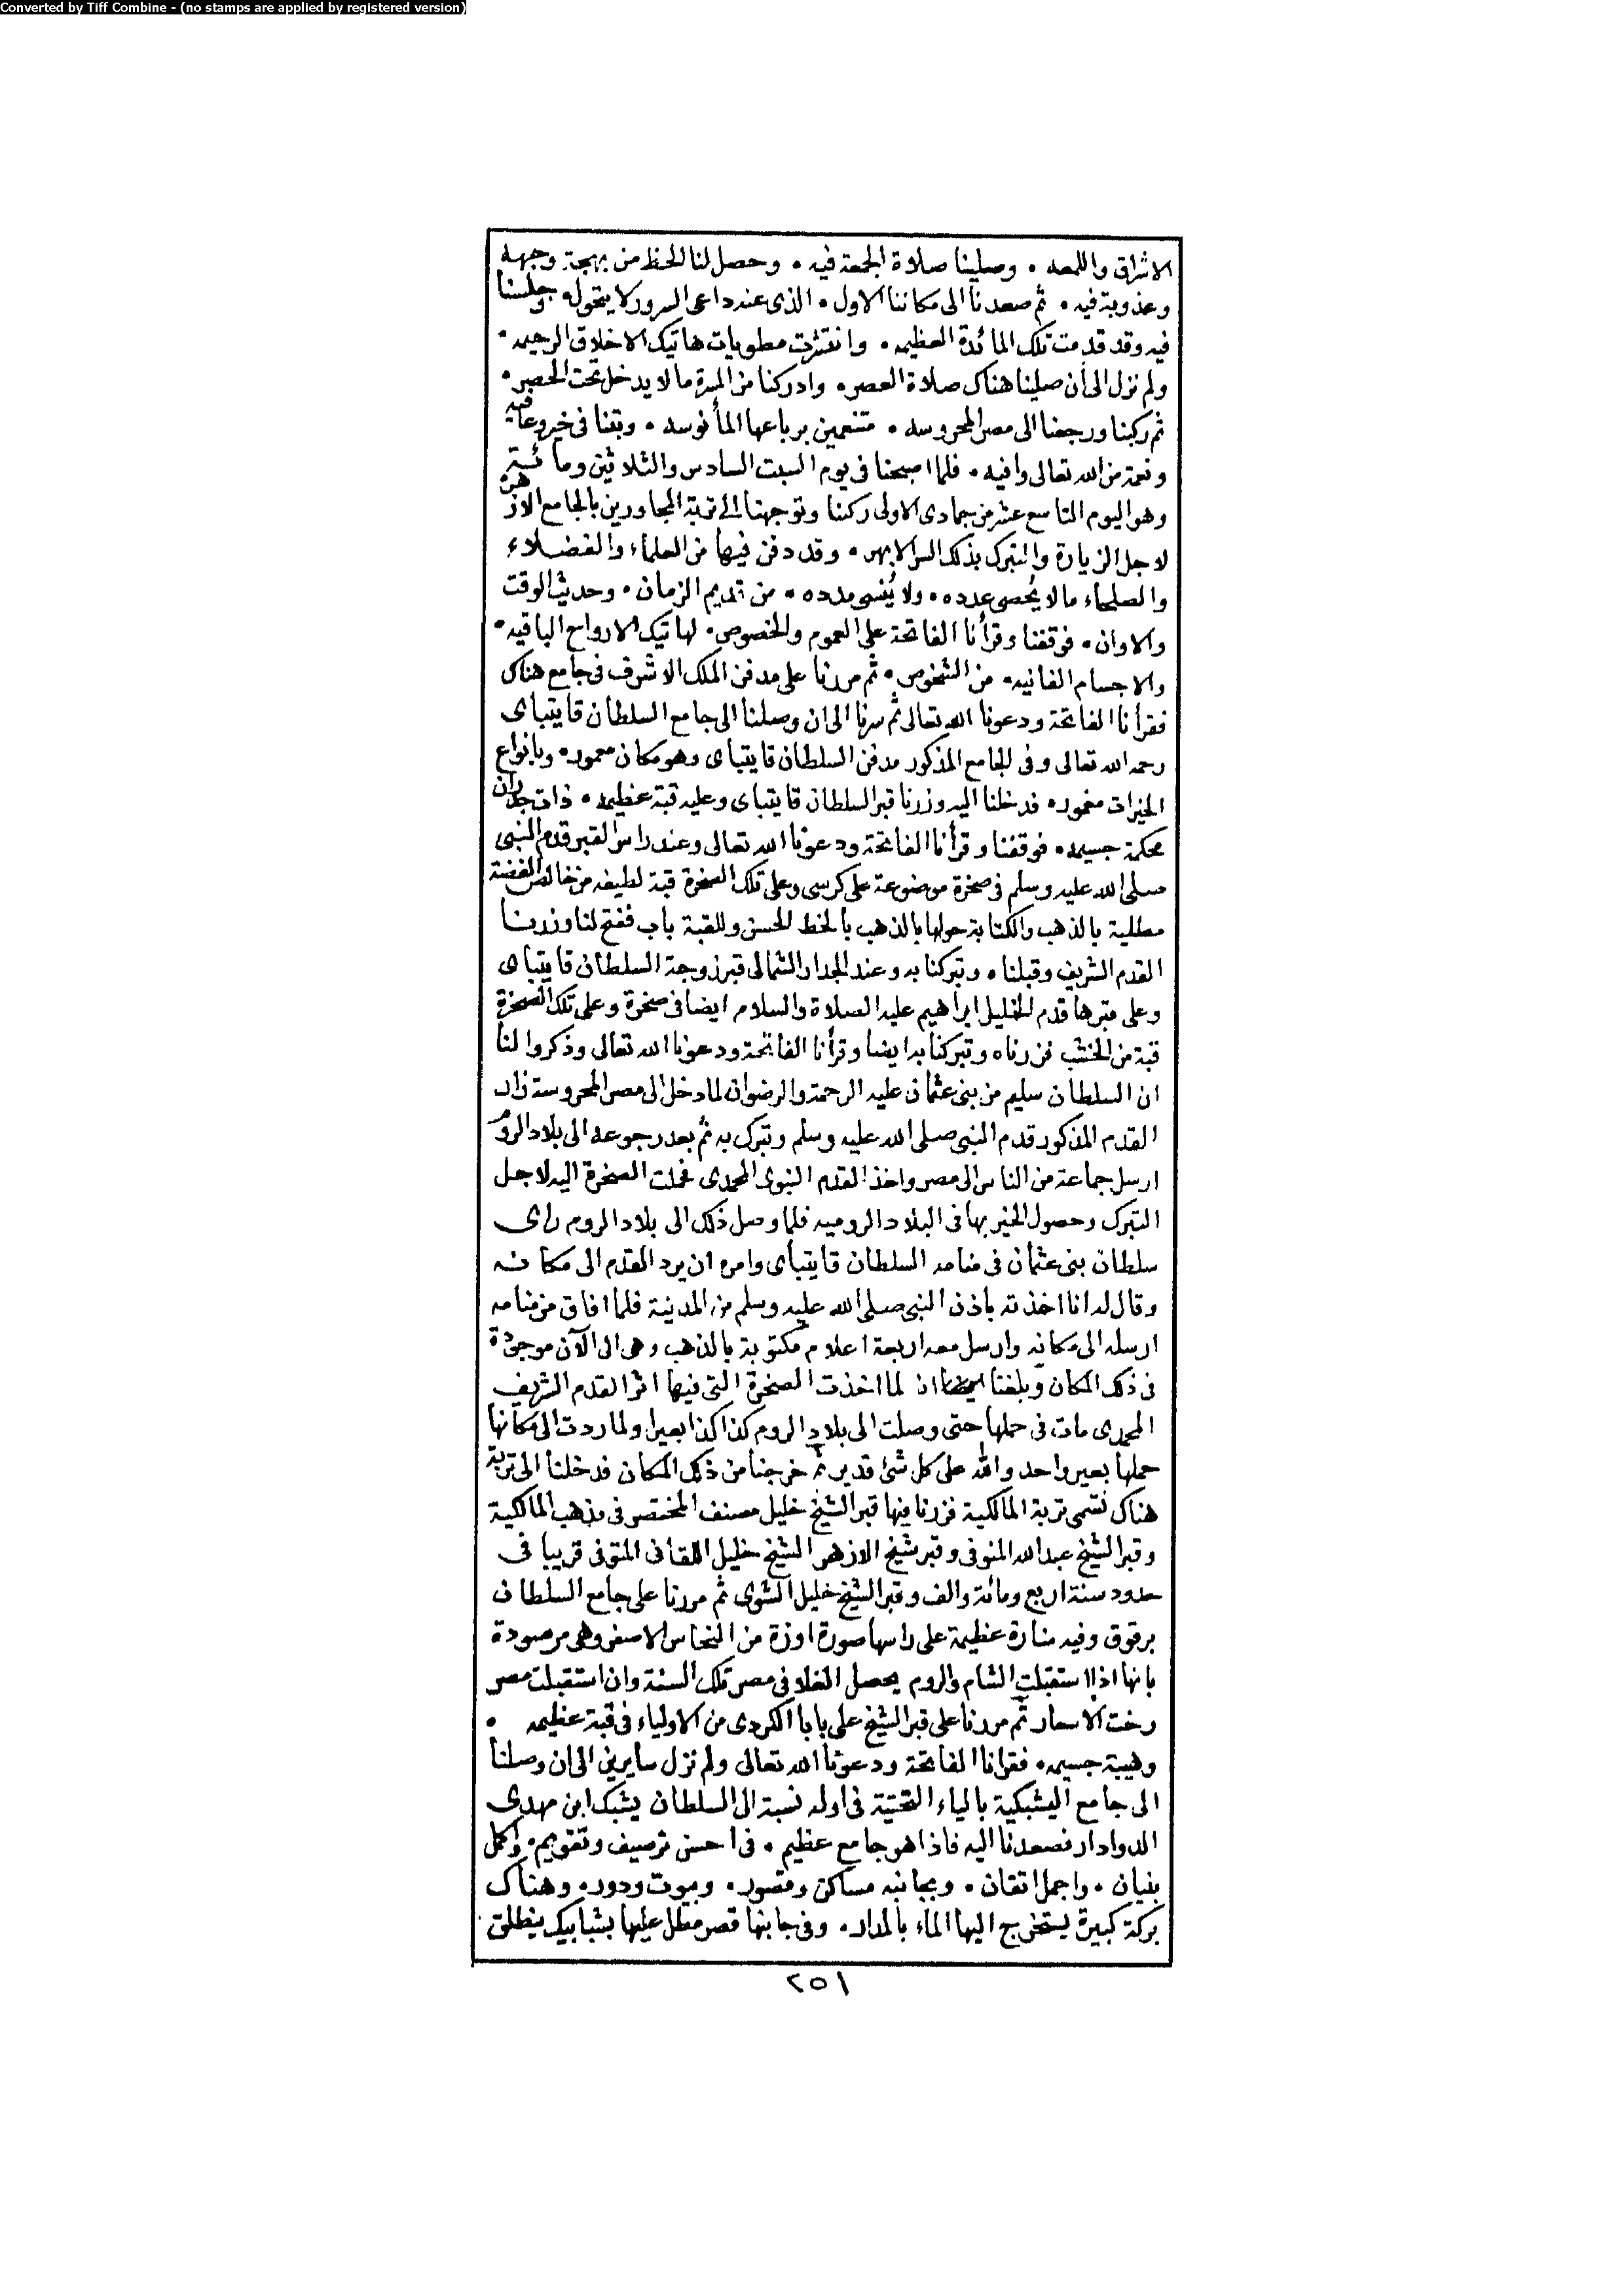 Converted by Tiff Combine - (no stamps are applied by registered version)
الاشراق واللمعه • وصلينا صلاة الجمعة فيه • وحصل لنا الحظ من بهجة وجهه
وعذوبة فيه • ثم صعدنا الى مكاننا الاول • الذى عنه داعى السرور لا يتحول• وجلسنا
فيه وقد قدمت تلك المائدة العظيمه • وانتشرت مطويات هاتيك الاخلاق الرحيمه •
ولم نزل الى أن صلينا هناك صلاة العصر• وادركنا من المسرة ما لا يدخل تحت الحصر •
ثم ركبنا ورجعنا الى مصر المحروسه • متنعمين برباعها المأنوسه • وبتنا فى خير وعافيه
ونعمة من الله تعالى وافيه • فلما اصبحنا فى يوم السبت السادس والثلاثين ومائتين
وهو اليوم التاسع عشر من جمادى الاولى ركبنا وتوجهنا الى تربة المجاورين بالجامع الازهر
لاجل الزيارة والتبرك بذلك السر الابهر • وقد دفن فيها من العلماء والفضلاء
والصلحاء ما لا يُحصى عدده • ولا يُنسى مدده • من قديم الزمان • وحديث الوقت
والاوان • فوقفنا وقرأنا الفاتحة على العموم والخصوص • لهاتيك الارواح الباقيه •
والاجسام الفانيه • من الشخوص • ثم مررنا على مدفن الملك الاشرف فى جامع هناك
فقرأنا الفاتحة ودعونا الله تعالى ثم سرنا الى ان وصلنا الى جامع السلطان قايتباى
رحمه الله تعالى وفى الجامع المذكور مدفن السلطان قايتباى وهو مكان معمور • وبانواع
الخيرات مغمور • فدخلنا اليه وزرنا قبر السلطان قايتباى وعليه قبة عظيمه • ذات جدران
محكمة جسيمه • فوقفنا وقرأنا الفاتحة ودعونا الله تعالى وعند راس القبر قدم النبى
صلى الله عليه وسلم فى صخرة موضوعة على كرسى وعلى تلك الصخرة قبة لطيفه من خالص الفضة
مطلية بالذهب والكتابة حولها بالذهب بالخط الحسن وللقبة باب ففتح لنا وزرنا
القدم الشريف وقبلناه وتبركنا به وعند الجدار الشمالى قبر زوجة السلطان قايتباى
وعلى قبرها قدم الخليل ابراهيم عليه الصلاة والسلام ايضا فى صخرة وعلى تلك الصخرة
قبة من الخشب فزرناه وتبركنا به ايضا وقرأنا الفاتحة ودعونا الله تعالى وذكروا لنا
ان السلطان سليم من بنى عثمان عليه الرحمة والرضوان لما دخل الى مصر المحروسة زار
القدم المذكور قدم النبى صلى الله عليه وسلم وتبرك به ثم بعد رجوعه الى بلاد الروم
ارسل جماعة من الناس الى مصر واخذ القدم النبوى المحمدى فحملت الصخرة اليه لاجل
التبرك وحصول الخير بها فى البلاد الروميه فلما وصل ذلك الى بلاد الروم راى
سلطان بنى عثمان فى منامه السلطان قايتباى وامره ان يرد القدم الى مكانه
وقال له انا اخذته باذن النبى صلى الله عليه وسلم من المدينة فلما افاق من منامه
ارسله الى مكانه وارسل معه اربعة اعلام مكتوبة بالذهب وهى الى الآن موجودة
فى ذلك المكان وبلغنا ايضا ان لما اخذت الصخرة التى فيها اثر القدم الشريف
المحمدى مات فى حملها حتى وصلت الى بلاد الروم كذا كذا بعيرا ولما ردت الى مكانها
حملها بعير واحد والله على كل شئ قدير ثم خرجنا من ذلك المكان فدخلنا الى تربة
هناك تسمى تربة المالكية فزرنا فيها قبر الشيخ خليل مصنف المختصر فى مذهب المالكية
وقبر الشيخ عبدالله المنوفى وقبر شيخ الازهر الشيخ خليل اللقانى المتوفى قريبا فى
حدود سنة اربع ومائة والف وقبر الشيخ خليل الشوى ثم مررنا على جامع السلطان
برقوق وفيه منارة عظيمة على راسها صورة اوزة من النحاس الاصفر وهى مرصودة
بانها اذا استقبلت الشام والروم يحصل الغلا فى مصر تلك السنة وان استقبلت مصر
رخت الاسعار ثم مررنا على قبر الشيخ على بابا الكردى من الاولياء فى قبة عظيمه •
وهيبة جسيمه • فقرانا الفاتحة ودعونا الله تعالى ولم نزل سايرين الى ان وصلنا
الى جامع اليشبكية بالياء التحتية فى اوله نسبة الى السلطان يشبك ابن مهدى
الدوادار فصعدنا اليه فاذا هو جامع عظيم • فى احسن ترصيف وتقويم • واكمل
بنيان • واجمل اتقان • وبجانبه مساكن وقصور • وبيوت ودور • وهناك
بركة كبيرة يستخرج اليها الماء بالمدار • وفى جانبها قصر مطل عليها بشبابيك ينطلق
٢٥١